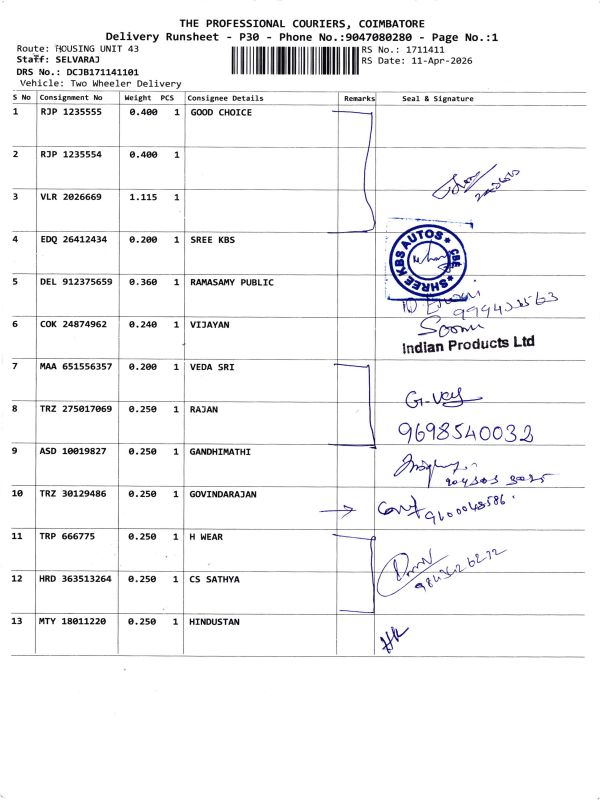 THE PROFESSIONAL COURIERS, COIMBATORE
Delivery Runsheet - P30 - Phone No.:9047080280 - Page No.:1
Route: HOUSING UNIT 43
RS No.: 1711411
Staff: SELVARAJ
RS Date: 11-Apr-2026
DRS No.: DCJB171141101
Vehicle: Two Wheeler Delivery
S No Consignment No Weight PCS Consignee Details Remarks Seal & Signature
1 RJP 1235555 0.400 1 GOOD CHOICE
2 RJP 1235554 0.400 1
3 VLR 2026669 1.115 1
4 EDQ 26412434 0.200 1 SREE KBS
SHREE KBS AUTOS CBE
5 DEL 912375659 0.360 1 RAMASAMY PUBLIC
6 COK 24874962 0.240 1 VIJAYAN
Indian Products Ltd
7 MAA 651556357 0.200 1 VEDA SRI
8 TRZ 275017069 0.250 1 RAJAN
9698540032
9 ASD 10019827 0.250 1 GANDHIMATHI
10 TRZ 30129486 0.250 1 GOVINDARAJAN
9600048586
11 TRP 666775 0.250 1 H WEAR
12 HRD 363513264 0.250 1 CS SATHYA
13 MTY 18011220 0.250 1 HINDUSTAN